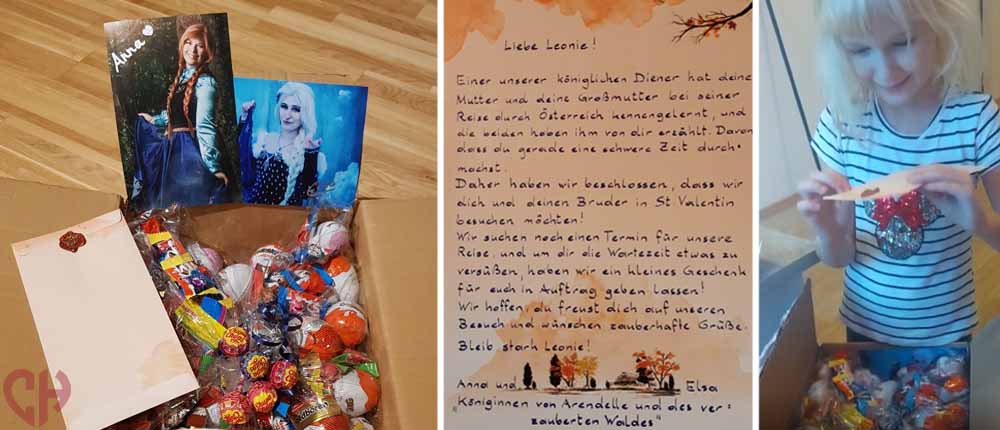 Anna
Liebe Leonie!
Einer unserer königlichen Diener hat deine
Mutter und deine Großmutter bei seiner
Reise durch Österreich kennengelernt, und
die beiden haben ihm von dir erzählt. Davon
dass du gerade eine schwere Zeit durch-
machst.
Daher haben wir beschlossen, dass wir
dich und deinen Bruder in St. Valentin
besuchen möchten!
Wir suchen noch einen Termin für unsere
Reise, und um dir die Wartezeit etwas zu
versüßen, haben wir ein kleines Geschenk
für euch in Auftrag geben lassen!
Wir hoffen, du freust dich auf unseren
Besuch und wünschen zauberhafte Grüße.
Bleib stark Leonie!
Anna und Elsa
"Königinnen von Arendelle und des ver=
zauberten Waldes"
CH